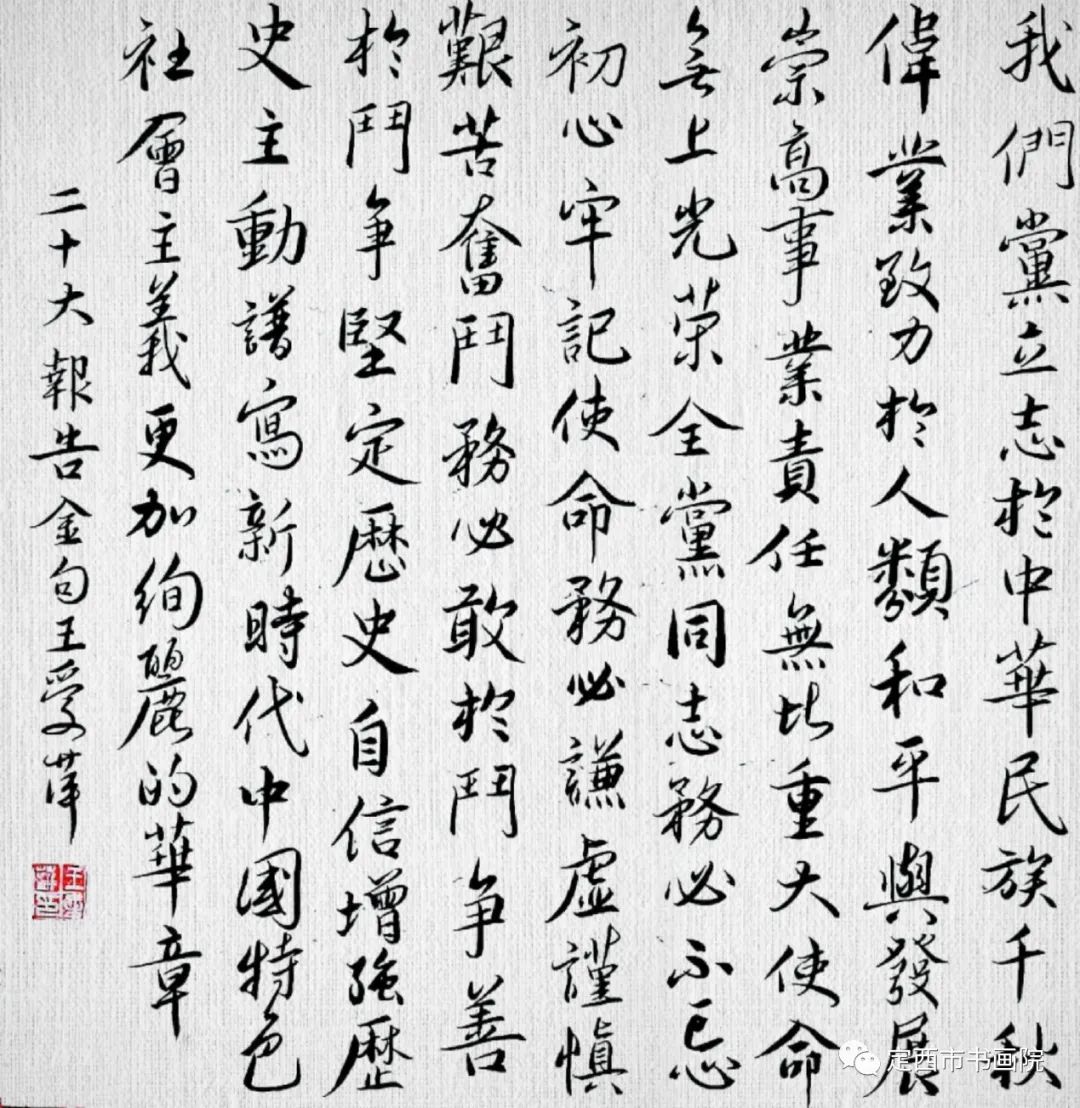 我們黨立志於中華民族千秋
偉業致力於人類和平與發展
崇高事業責任無比重大使命
無上光荣全黨同志務必不忘
初心牢記使命務必謙虛謹慎
艱苦奮鬥務必敢於鬥争善
於鬥争堅定歷史自信增強歷
史主動譜寫新時代中國特色
社會主義更加絢麗的華章
二十大報告金句王受
定西市书画院